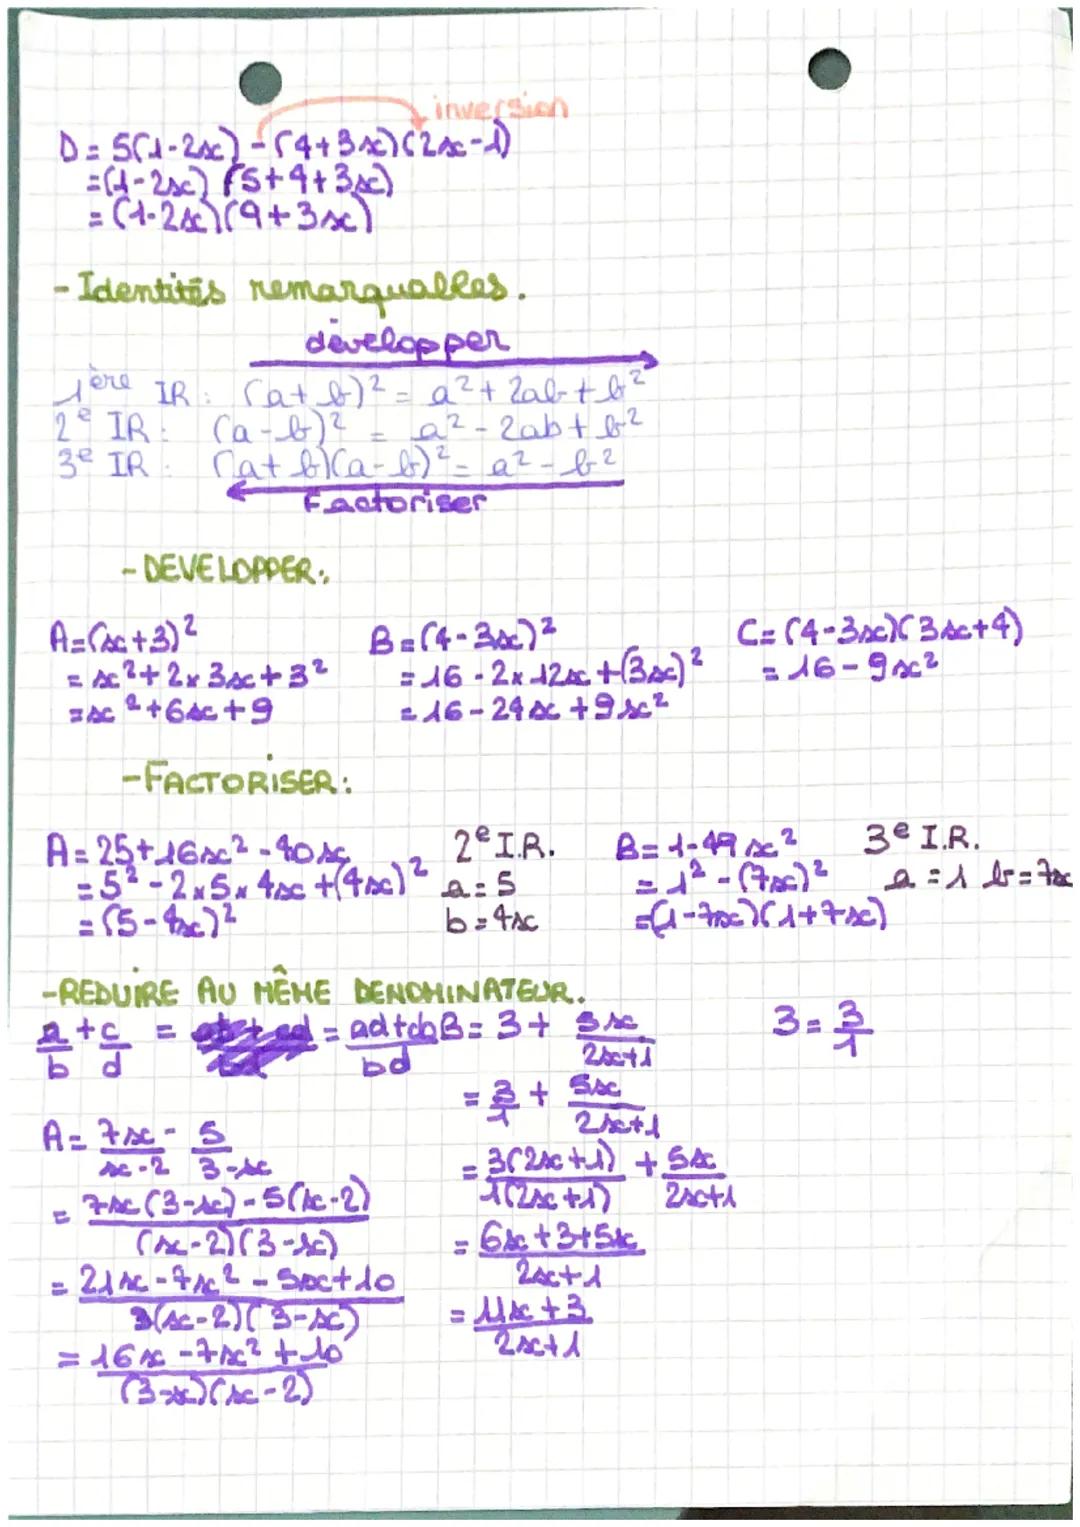 inversion
D = 5(1-2x) - (4+3x)(2x-1)
= (1-2x) (5+4+3x)
= (1-2x)(9+3x)
- Identités remarquables.
développer
1ère IR : (a+b)² = a² + 2ab + b²
2e IR : (a-b)² = a² - 2ab + b²
3e IR : (a+b)(a-b)² = a² - b²
Factoriser
- DEVELOPPER:
A=(x+3)²
= x² + 2x 3x + 3²
= x² + 6x + 9
B = (4-3x)²
= 16 - 2x 12x + (3x)²
= 16 - 24x + 9x²
C= (4-3x)(3x+4)
= 16 - 9x²
- FACTORISER:
A= 25+16x² - 40x
= 5² - 2x5x 4x + (4x)²
= (5-4x)²
2e I.R.
a = 5
b = 4x
B= 1-49x²
= 1² - (7x)²
=(1-7x)(1+7x)
3e I.R.
a = 1 b = 7x
-REDUIRE AU MÊME DENOMINATEUR.
a/b + c/d = = ad+cb/bd
A= 7x/x-2 - 5/3-x
= 7x(3-x) - 5(x-2)/(x-2)(3-x)
= 21x - 7x² - 5x + 10/(x-2)(3-x)
= 16x - 7x² + 10/(3-x)(x-2)
B= 3+ 5x/2x+1
= 3/1 + 5x/2x+1
= 3(2x+1)/1(2x+1) + 5x/2x+1
= 6x+3+5x/2x+1
= 11x+3/2x+1
3 = 3/1